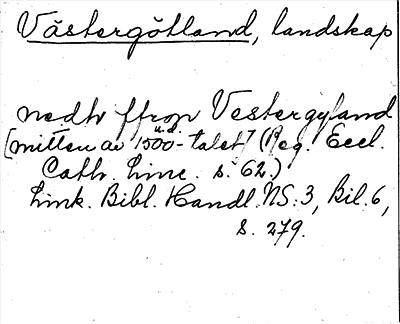 Västergötland, landskap
nedh ffron Vestergyland
[mitten av 1500-talet] (Reg. Eccl.
u.d.
Cath. Linc. s. 62.)
Link. Bibl. Handl. NS: 3, Bil. 6,
s. 279.